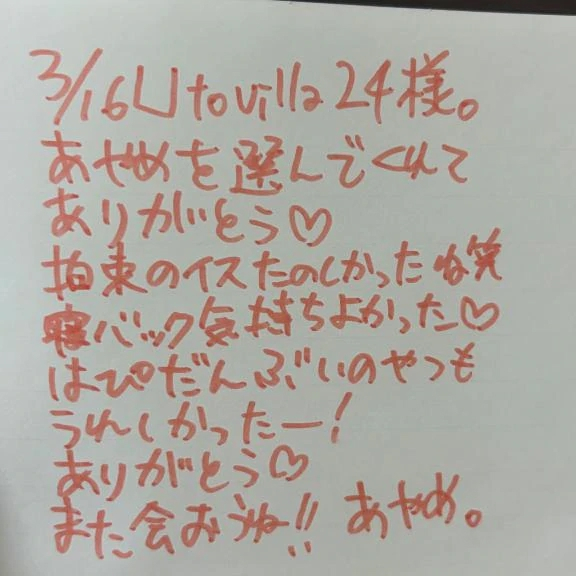 3/16 Utovilla 24様。
あやめを選んでくれて
ありがとう♡
拍束のイスたのしかったね笑
寝バック気持ちよかった♡
はぴだんぶいのやつも
うれしかったー!
ありがとう♡
また会おうね!! あやめ。